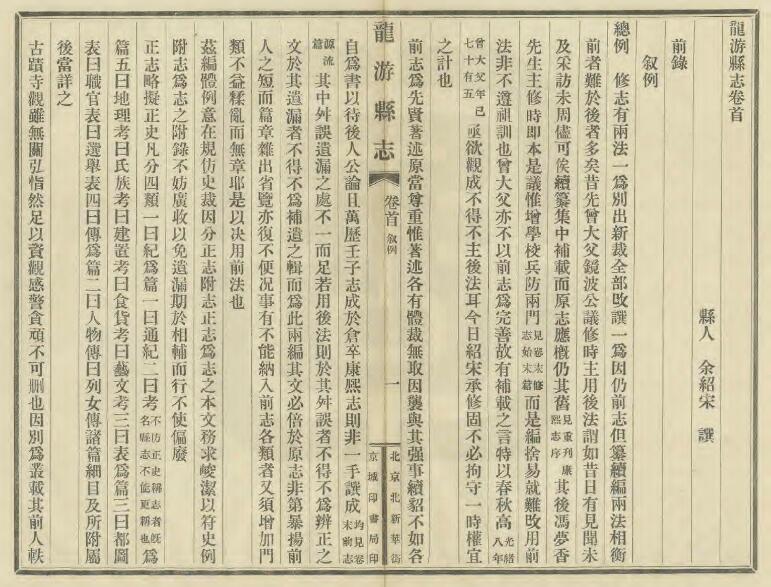 龍游縣志卷首
縣人　余紹宋　譔
前錄
敘例
總例　修志有兩法一爲別出新裁全部改譔一爲因仍前志但纂續編兩法相衡
前者難於後者多矣昔先曾大父鏡波公議修時主用後法謂如昔日有見聞未
及采訪未周儘可俟續纂集中補載而原志應槪仍其舊見重刋康熙志序其後馮夢香
先生主修時即本是議惟增學校兵防兩門見卷末修志始末篇而是編捨易就難改用前
法非不遵祖訓也曾大父亦不以前志爲完善故有補載之言特以春秋高光緒八年
曾大父年已七十有五亟欲觀成不得不主後法耳今日紹宋承修固不必拘守一時權宜
之計也
前志爲先賢著述原當尊重惟著述各有體裁無取因襲與其强事續貂不如各
龍游縣志
卷首 敘例
一
北京北新華街
京城印書局印
自爲書以待後人公論且萬歷壬子志成於倉卒康熙志則非一手譔成均見卷末前志
源流篇其中舛誤遺漏之處不一而足若用後法則於其舛誤者不得不爲辨正之
文於其遺漏者不得不爲補遺之輯而爲此兩編其文必倍於原志非第暴揚前
人之短而篇章雜出省覽亦復不便況事有不能納入前志各類者又須增加門
類不益糅亂而無章耶是以決用前法也
茲編體例意在規仿史裁因分正志附志正志爲志之本文務求峻潔以符史例
附志爲志之附錄不妨廣收以免遺漏期於相輔而行不使偏廢
正志略擬正史凡分四類一曰紀爲篇一曰通紀二曰考不仿正史稱志者旣名縣志不能更稱也爲
篇五曰地理考曰氏族考曰建置考曰食貨考曰藝文考三曰表爲篇三曰都圖
表曰職官表曰選舉表四曰傳爲篇二曰人物傳曰列女傳諸篇細目及所附屬
後當詳之
古蹟寺觀雖無關弘恉然足以資觀感警貪頑不可刪也因別爲叢載其前人軼